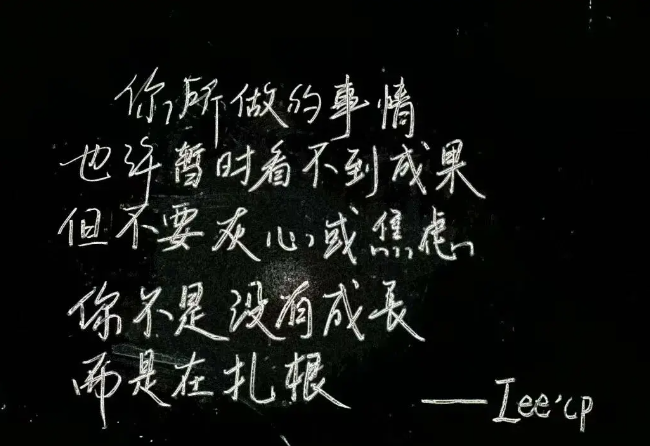 你所做的事情
也许暂时看不到成果
但不要灰心或焦虑
你不是没有成長
而是在扎根
——Lee·cp